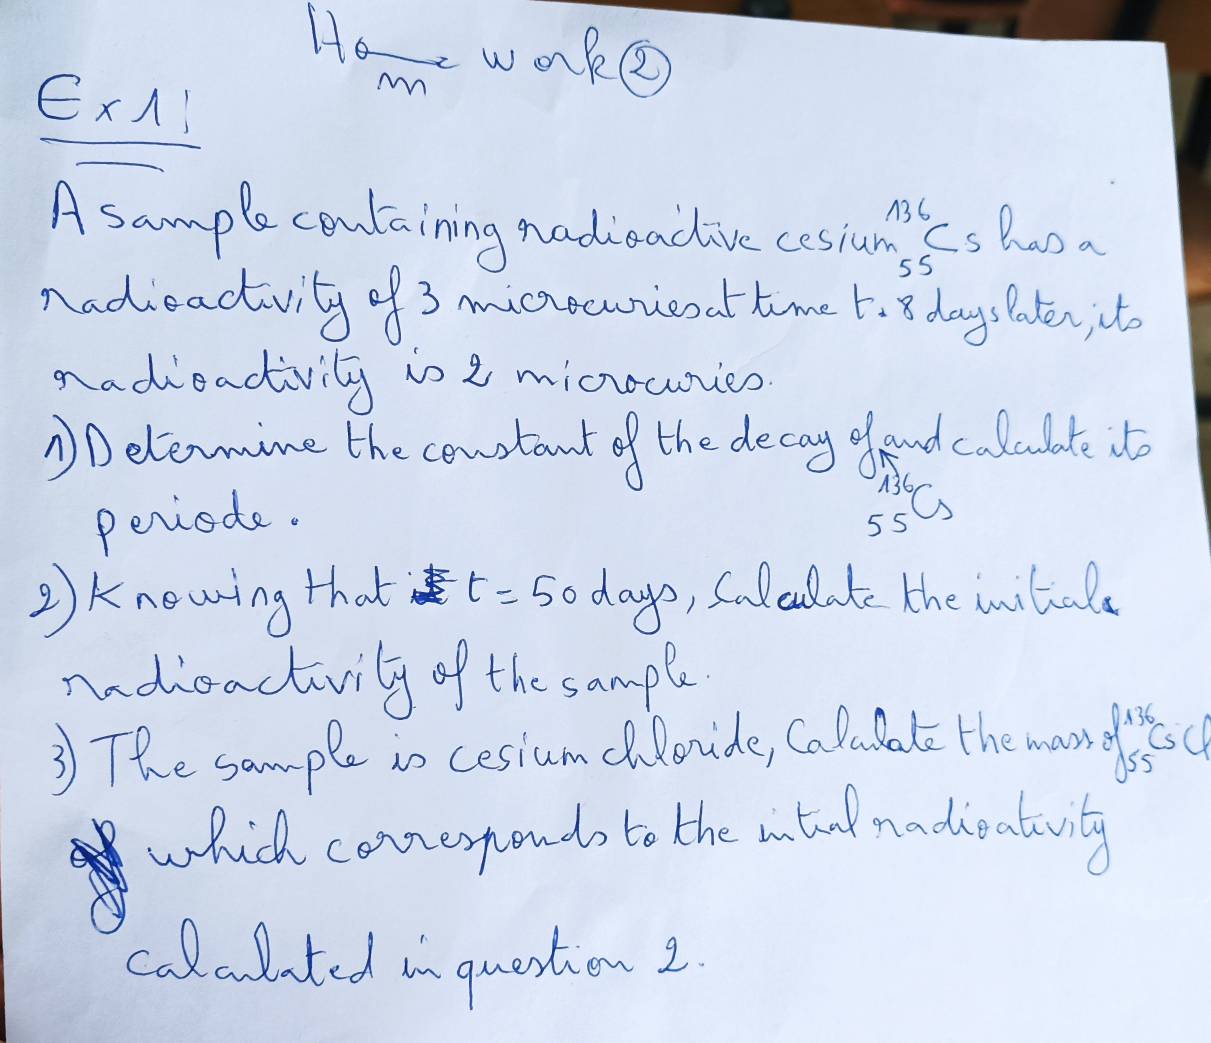 Home work ②
Ex 1:
A sample containing radioactive cesium ¹³⁶₅₅Cs has a
radioactivity of 3 microcuries at time t. 8 days later, its
radioactivity is 2 microcuries.
1) Determine the constant of the decay of and calculate its
¹³⁶₅₅Cs
periode.
2) Knowing that t = 50 days, Calculate the initial
radioactivity of the sample.
3) The sample is cesium chloride, Calculate the mass of ¹³⁶₅₅CsCl
which corresponds to the intial radioativity
calculated in question 2.